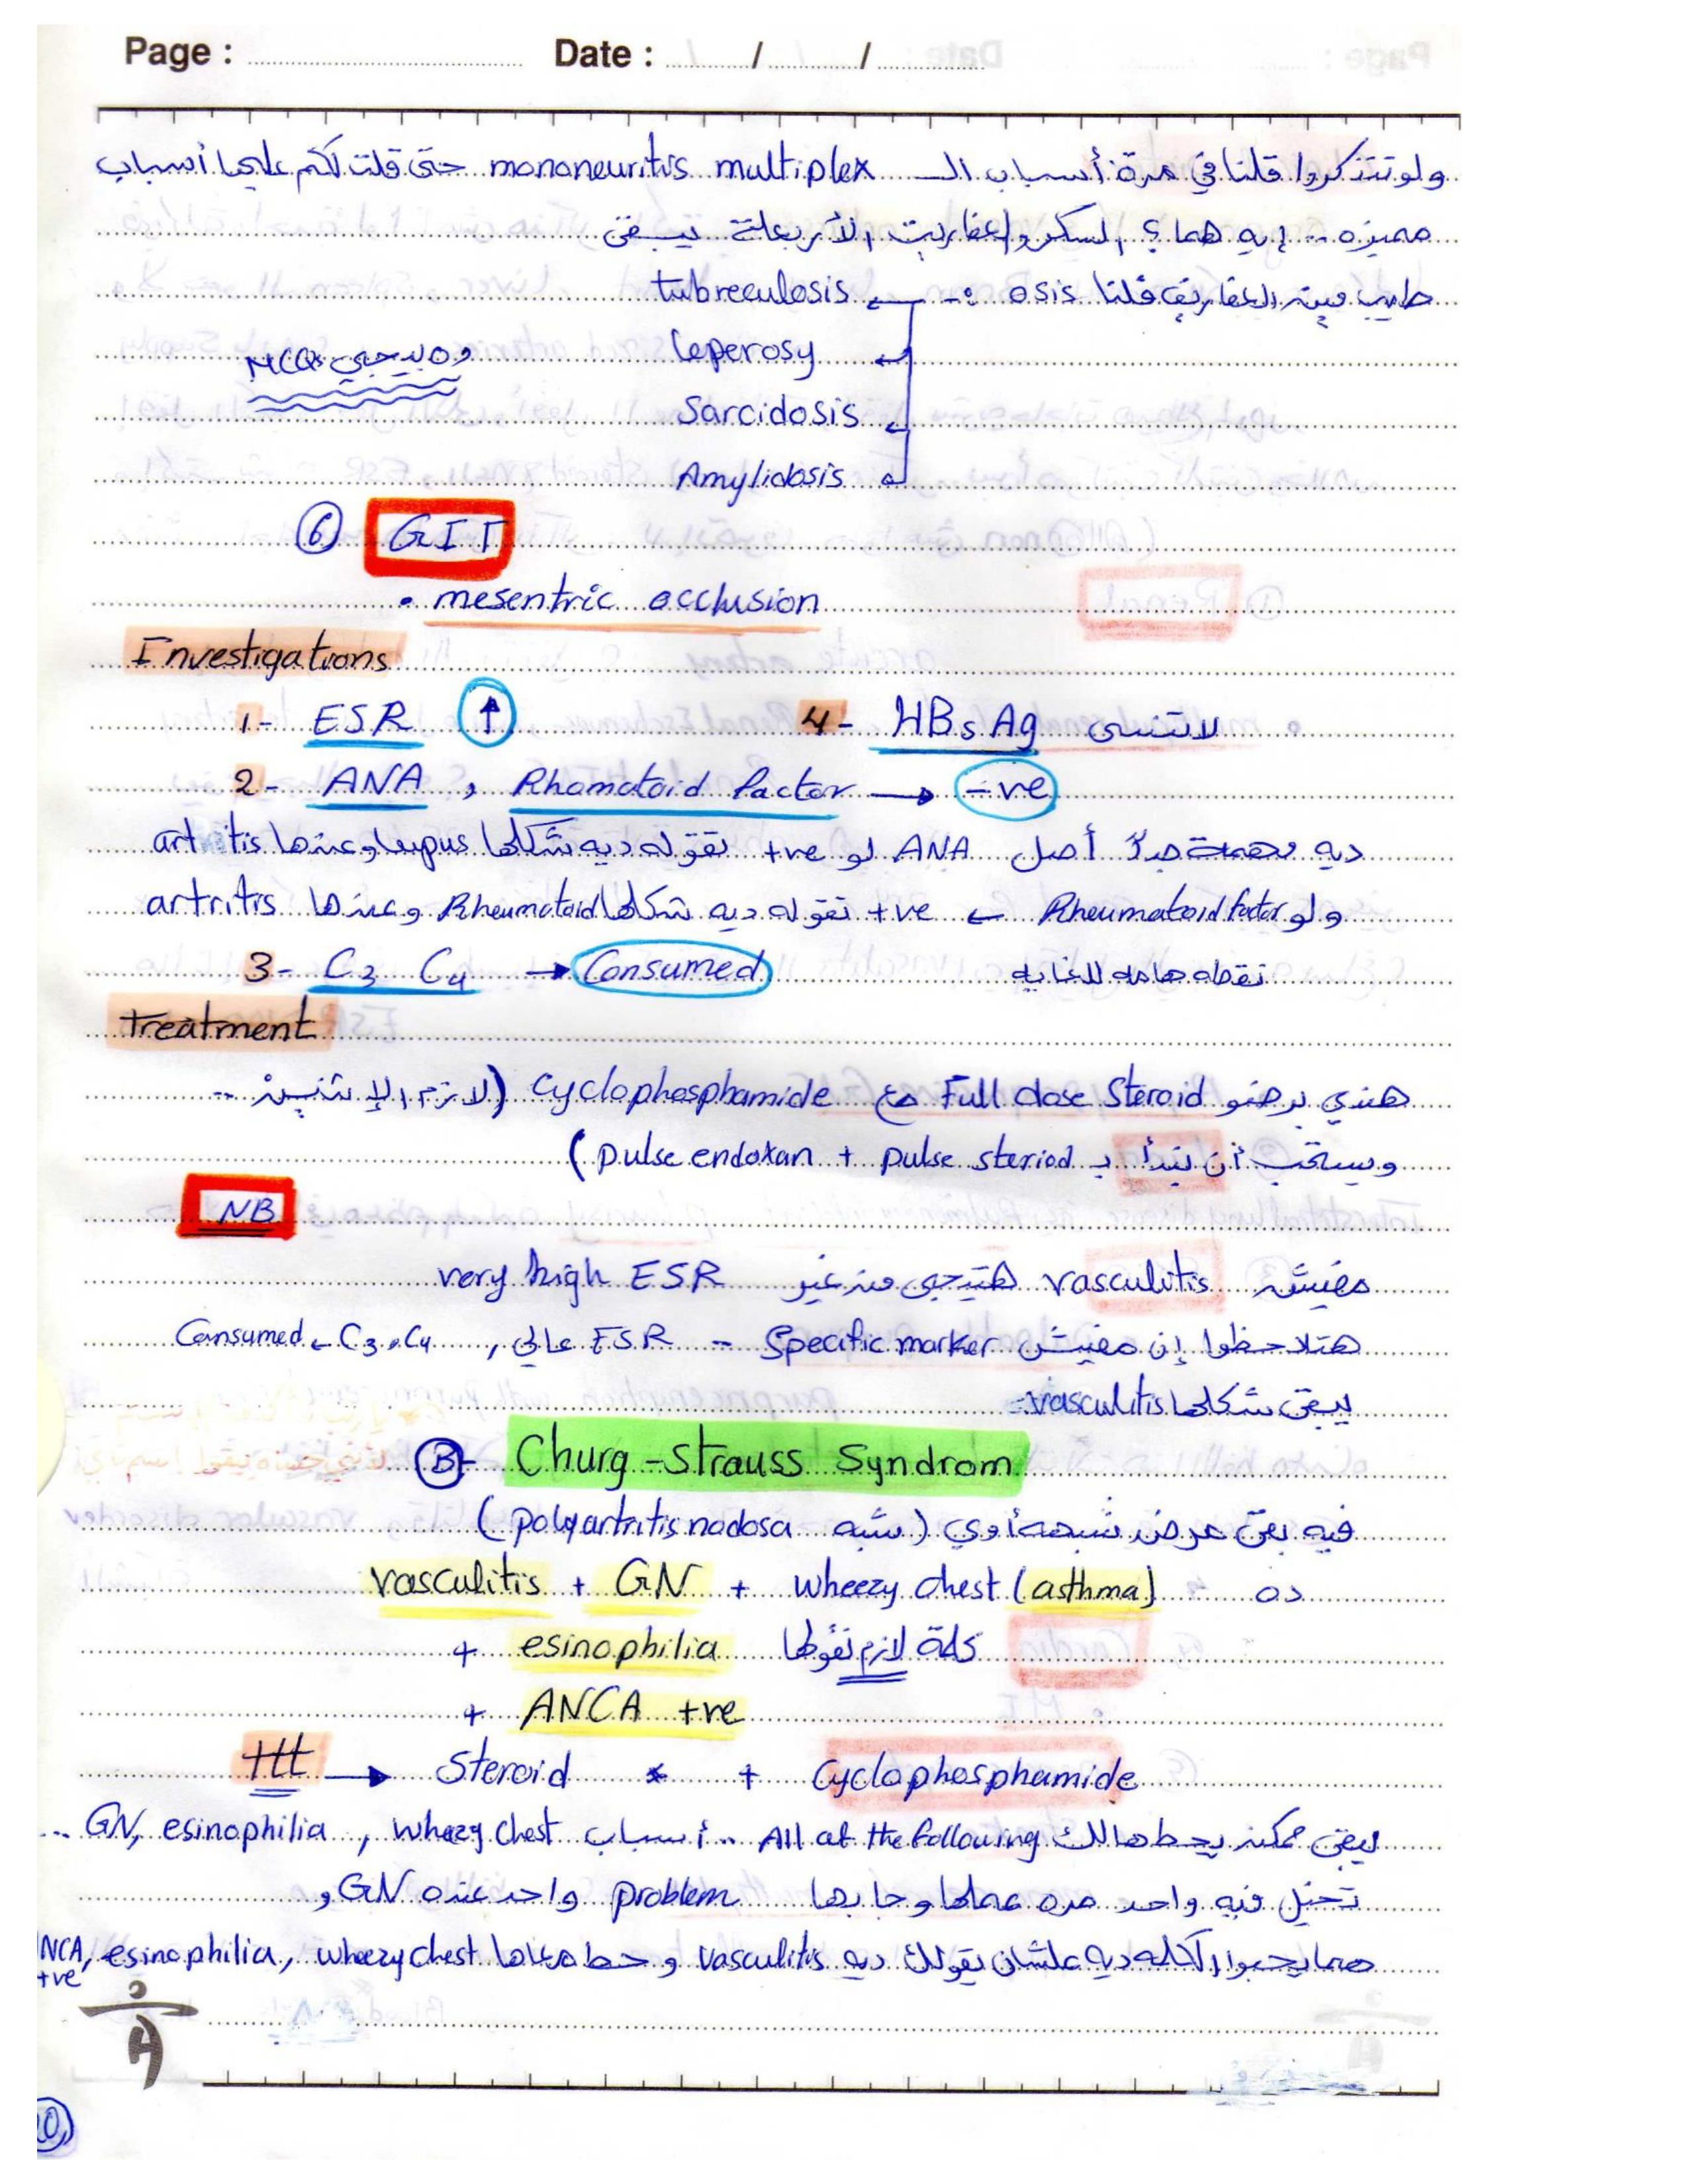 Page : Date : / /
ولو تتذكروا قلنا في مرة أسباب الـ mononeuritis multiplex حتى قلت لكم عليها أسباب
مميزه .. إيه هما ؟ السكر والعفاريت الأربعة يبقى
طيب مين العفاريت قلنا osis :- tubreculosis
leperosy
وه بيجي MCQs
Sarcidosis
Amylidosis
6 GIT
• mesentric occlusion
Investigations
1- ESR ↑
4- HBs Ag لاتنسى
2- ANA , Rhamatoid factor → -ve
ديه مهمة جداً أصل ANA لو +ve تقوله ديه شكلها lupus وعندها artritis
ولو Rheumatoid factor ← +ve تقوله ديه شكلها Rheumatoid وعندها artritis
3- C3 C4 → Consumed نقطه هامه للغايه
Treatment
هندي برضو Full dose Steroid مع cyclophosphamide (لازم الإتنين ..
ويستحب أن نبدأ بـ pulse steriod + pulse endoxan)
NB
مفيش vasculitis هتيجى من غير very high ESR
هتلاحظوا إن مفيش Specific marker .. ESR عالي , C3, C4 ← Consumed
يبقى شكلها vasculitis
B- Churg-Strauss Syndrom
فيه بقى عرض شبهه أوي (شبه polyartritis nodosa)
ده vasculitis + GN + wheezy chest (asthma)
+ esinophilia كلمة لازم تقولها
+ ANCA +ve
ttt → Steroid + Cyclophosphamide
يبقى ممكن يحطهالك All of the following .. أسباب wheezy chest , esinophilia , GN ..
تخيل فيه واحد مره عملها وجابها problem واحد عنده GN و
هما يجيبوا الكلمه ديه علشان يقولك ديه vasculitis وحط معاها wheezy chest , esinophilia , NCA +ve